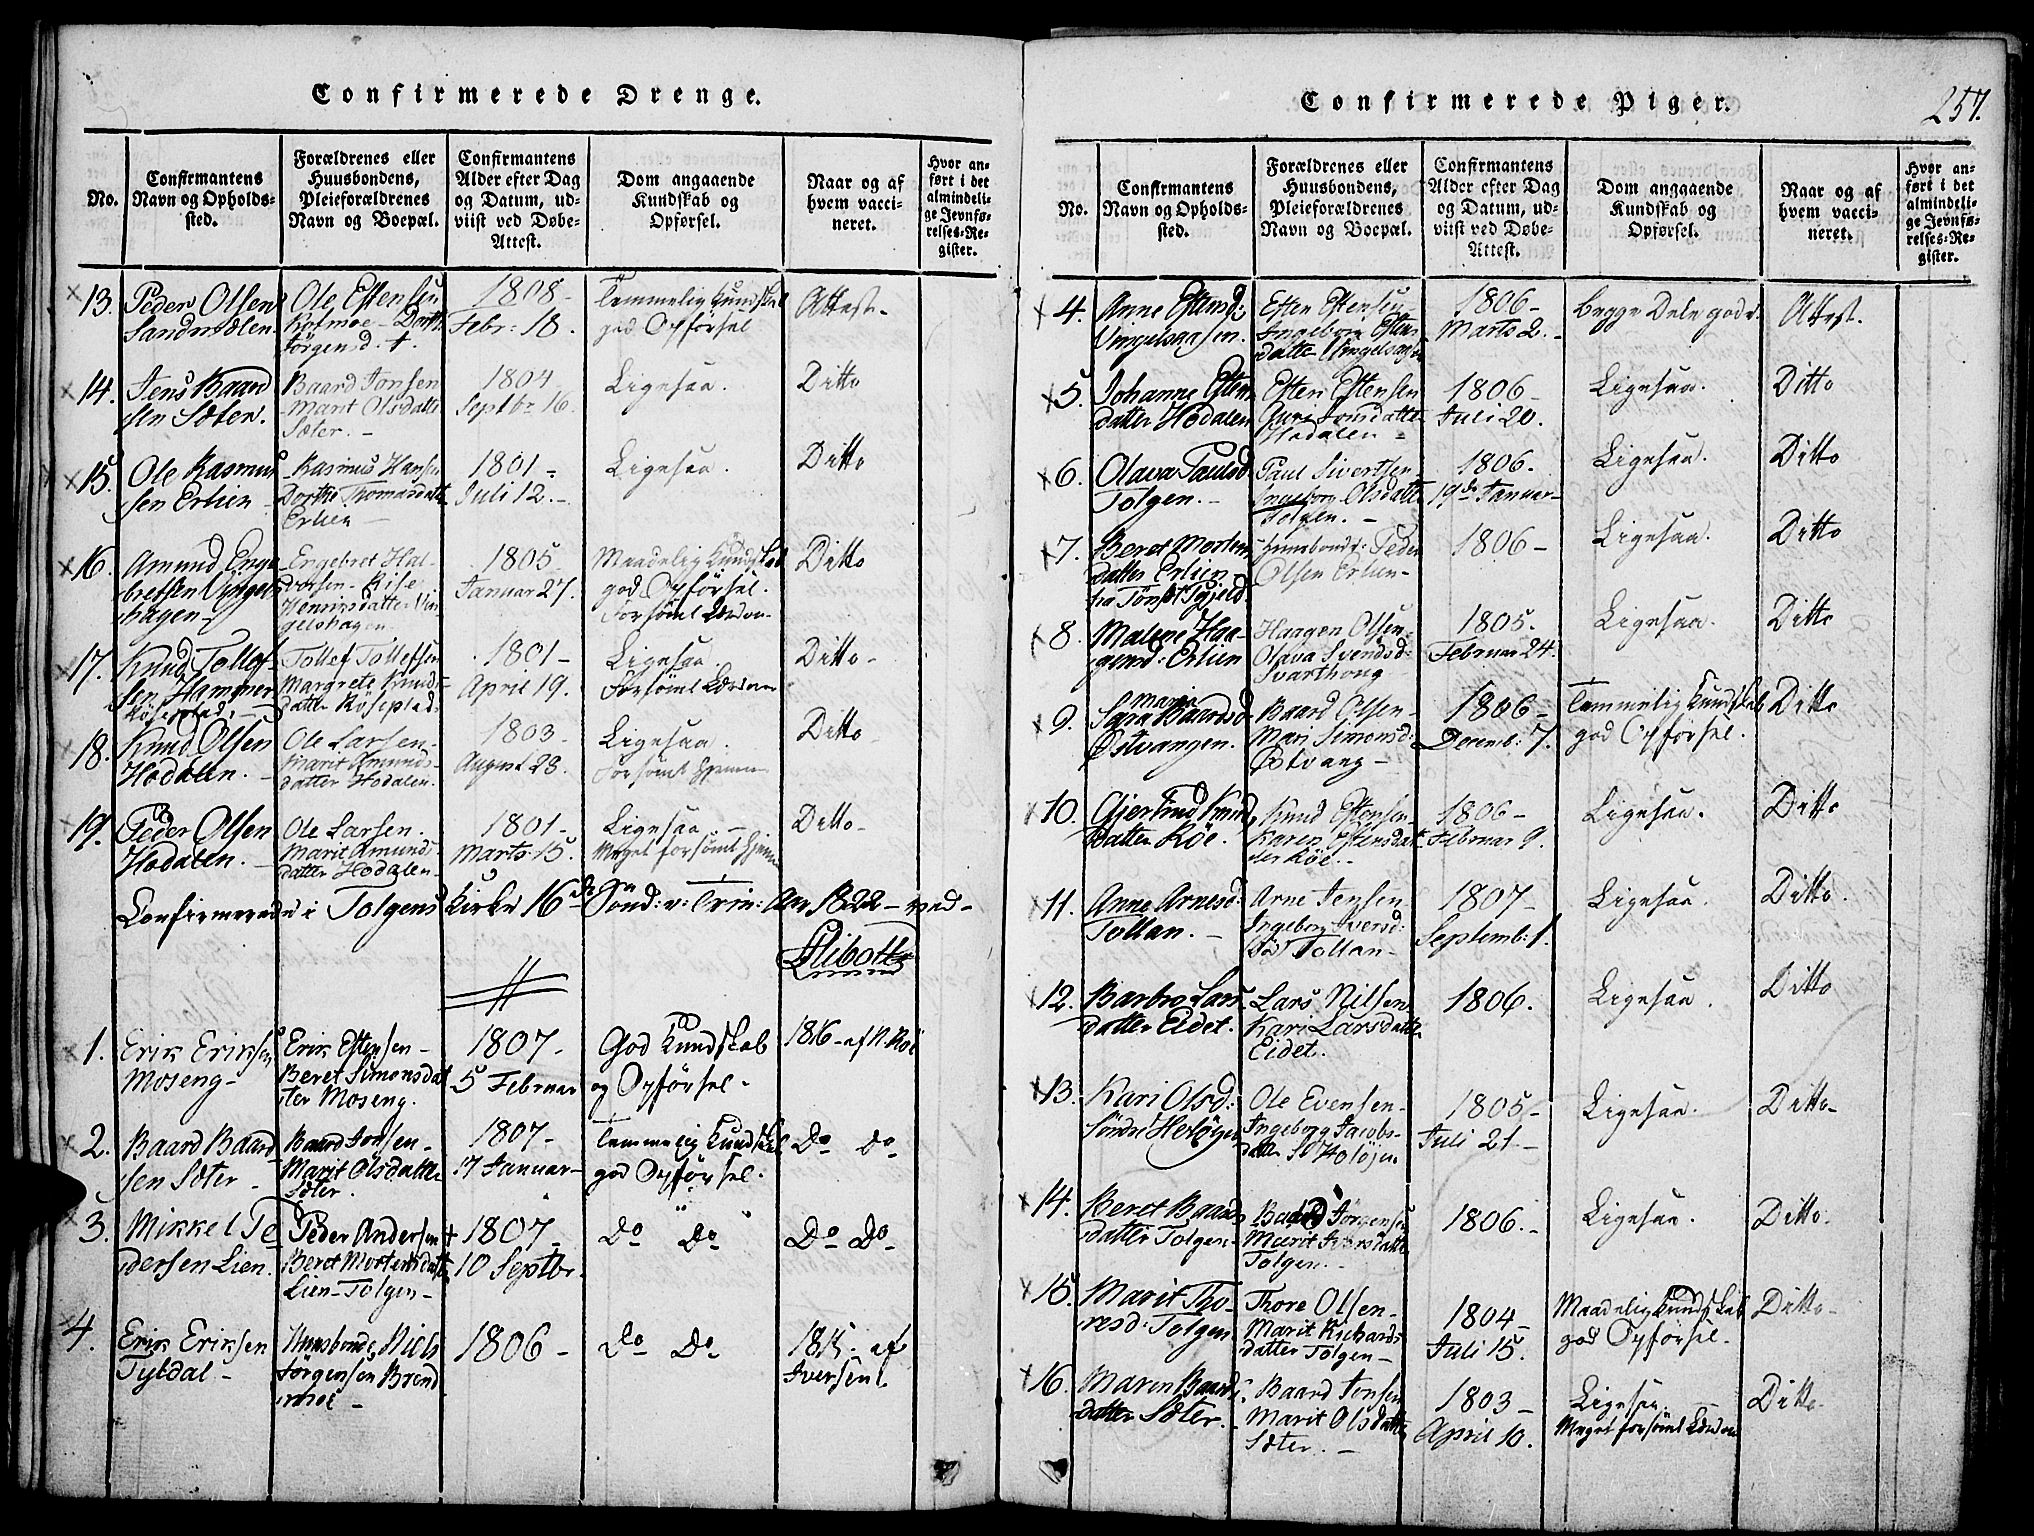 Confirmerede Drenge.
No.
Confirmantens
Navn og Opholds-
sted.
Forældrenes eller
Huusbondens,
Pleieforældrenes
Navn og Boepæl.
Confirmantens
Alder efter Dag
og Datum, ud-
viist ved Døbe-
Attest.
Dom angaaende
Kundskab og
Opførsel.
Naar og af
hvem vacci-
neret.
Hvor an-
ført i det
almindeli-
ge Jevnfø-
relses-Re-
gister.
13.
Peder Olsen
Sandmælen
Ole Estensen
Kolmoe -
Jørgensd. +.
1808 -
Febr: 18.
Temmelig Kundskab
god Opførsel
Attest -
14.
Jens Baard
sen Sæter.
Baard Jonsen
Marit Olsdatter
Sæter. -
1804
Septbr 16.
Ligesaa.
Ditto
15.
Ole Rasmus
sen Erlien
Rasmus Hansen
Dorthe Thomasdatter
Erlien -
1801 -
Juli 12. -
Ligesaa.
Ditto
16.
Amund Enge
bretsen Vingels
hagen -
Engebret Hal-
vorsen -
Henriksdatter Vin
gelshagen
1805.
Januar 27.
Maadelig Kundskab
god Opførsel.
Forsømt
Ditto
17.
Knud Tollef-
sen Hammer
Røseplads, -
Tollef Tollefsen
Margrete Knuds
datter Røseplads
1801 -
April 19.
Ligesaa.
Forsømt
Ditto -
18.
Knud Olsen
Hodalen. -
Ole Larsen -
Marit Amunds-
datter Hodalen.
1803 -
August 28.
Ligesaa.
Forsømt
Ditto -
19.
Peder Olsen
Hodalen. -
Ole Larsen.
Marit Amunds
datter Hodalen -
1801 -
Marts 15.
Ligesaa -
Meget forsømt
Ditto -
Confirmerede i Tolgens Kirke 16de Sønd: e: Trin: Aar 1822 - ved -
1.
Erik Eriksen
Moseng -
Erik Estensen -
Beret Simonsdat
ter Moseng.
1807 -
5 Februar
God Kundskab
og Opførsel -
1816 - af N. Röe
2.
Baard Baard-
sen Sæter -
Baard Jonsen -
Marit Olsdatter
Sæter.
1807 -
17 Januar -
Temmelig Kundskab
god Opførsel.
Do Do
3.
Mikkel Pe
dersen Lien.
Peder Andersen +
Beret Mortensdatter
Lien - Tolgen -
1807 -
10 Septbr.
Do Do
Do Do
4.
Erik Eriksen
Tyldal -
Huusbonde Niels
Jørgensen Brend
moe -
1806 -
Do Do
1815. af
Iversen
Confirmerede Piger.
257.
No.
Confirmantens
Navn og Opholds-
sted.
Forældrenes eller
Huusbondens,
Pleieforældrenes
Navn og Boepæl.
Confirmantens
Alder efter Dag
og Datum, ud-
viist ved Døbe-
Attest.
Dom angaaende
Kundskab og
Opførsel.
Naar og af
hvem vacci-
neret.
Hvor an-
ført i det
almindeli-
ge Jevnfø-
relses-Re-
gister.
4.
Anne Estensd:
Vingelsaasen.
Esten Estensen
Ingeborg Esten
datter Vingelsaasen
1806 -
Marts 2. -
begge Dele gode.
Attest.
5.
Johanne Esten
datter Hodalen
Esten Estensen
Guri Jonsdatter
Hodalen -
1806 -
Juli 20.
Ligesaa.
Ditto
6.
Olava Paulsd
Tolgen. -
Paul Sivertsen -
Ingeborg Olsdatter
Tolgen. -
1806.
19de Januar -
Ligesaa.
Ditto
7.
Beret Morten
datter Erlien
Huusbond: Peder
Olsen Erlien -
1806 -
Ligesaa.
Ditto
8.
Malene Haa-
gensd: Erlien
Haagen Olsen
Olava Svendsd:
Svarthoug
1805.
Februar 24.
Ligesaa.
Ditto
9.
Maria
Sara Baardsd
Østvangen.
Baard Olsen -
Mari Simonsd:
Østvang -
1806 -
Decemb: 7.
Temmelig Kundskab
god Opførsel.
Ditto
10.
Gjertrud Knuds
datter Röe.
Knud Estensen
Karen Estensdat
ter Röe. -
1806 -
Februar 9.
Ligesaa.
Ditto
11.
Anne Arnesd:
Tollan. -
Arne Jensen
Ingeborg Iversd:
Tollan -
1807 -
Septemb: 1.
Ligesaa.
Ditto.
12.
Barbro Lars
datter Eidet.
Lars Nilsen
Kari Larsdatter
Eidet.
1806.
Ligesaa.
Ditto
13.
Kari Olsd:
Søndre
Ole Evensen -
Ingeborg Jacobs-
datter
1805 -
Juli 21 -
Ligesaa.
Ditto -
14.
Beret Baards
datter Tolgen -
Baard Jørgensen
Marit Iversdatter
Tolgen. -
1806. -
Ligesaa.
Ditto.
15.
Marit Tho-
resd: Tolgen
Thore Olsen -
Marit Richards
datter Tolgen -
1804 -
Juli 15.
Maadelig Kundskab
god Opførsel -
Ditto -
16.
Maren Baards
datter Sæter.
Baard Jonsen
Marit Olsdatter
Sæter. -
1803 -
April 10.
Ligesaa.
Meget forsømt
Ditto -